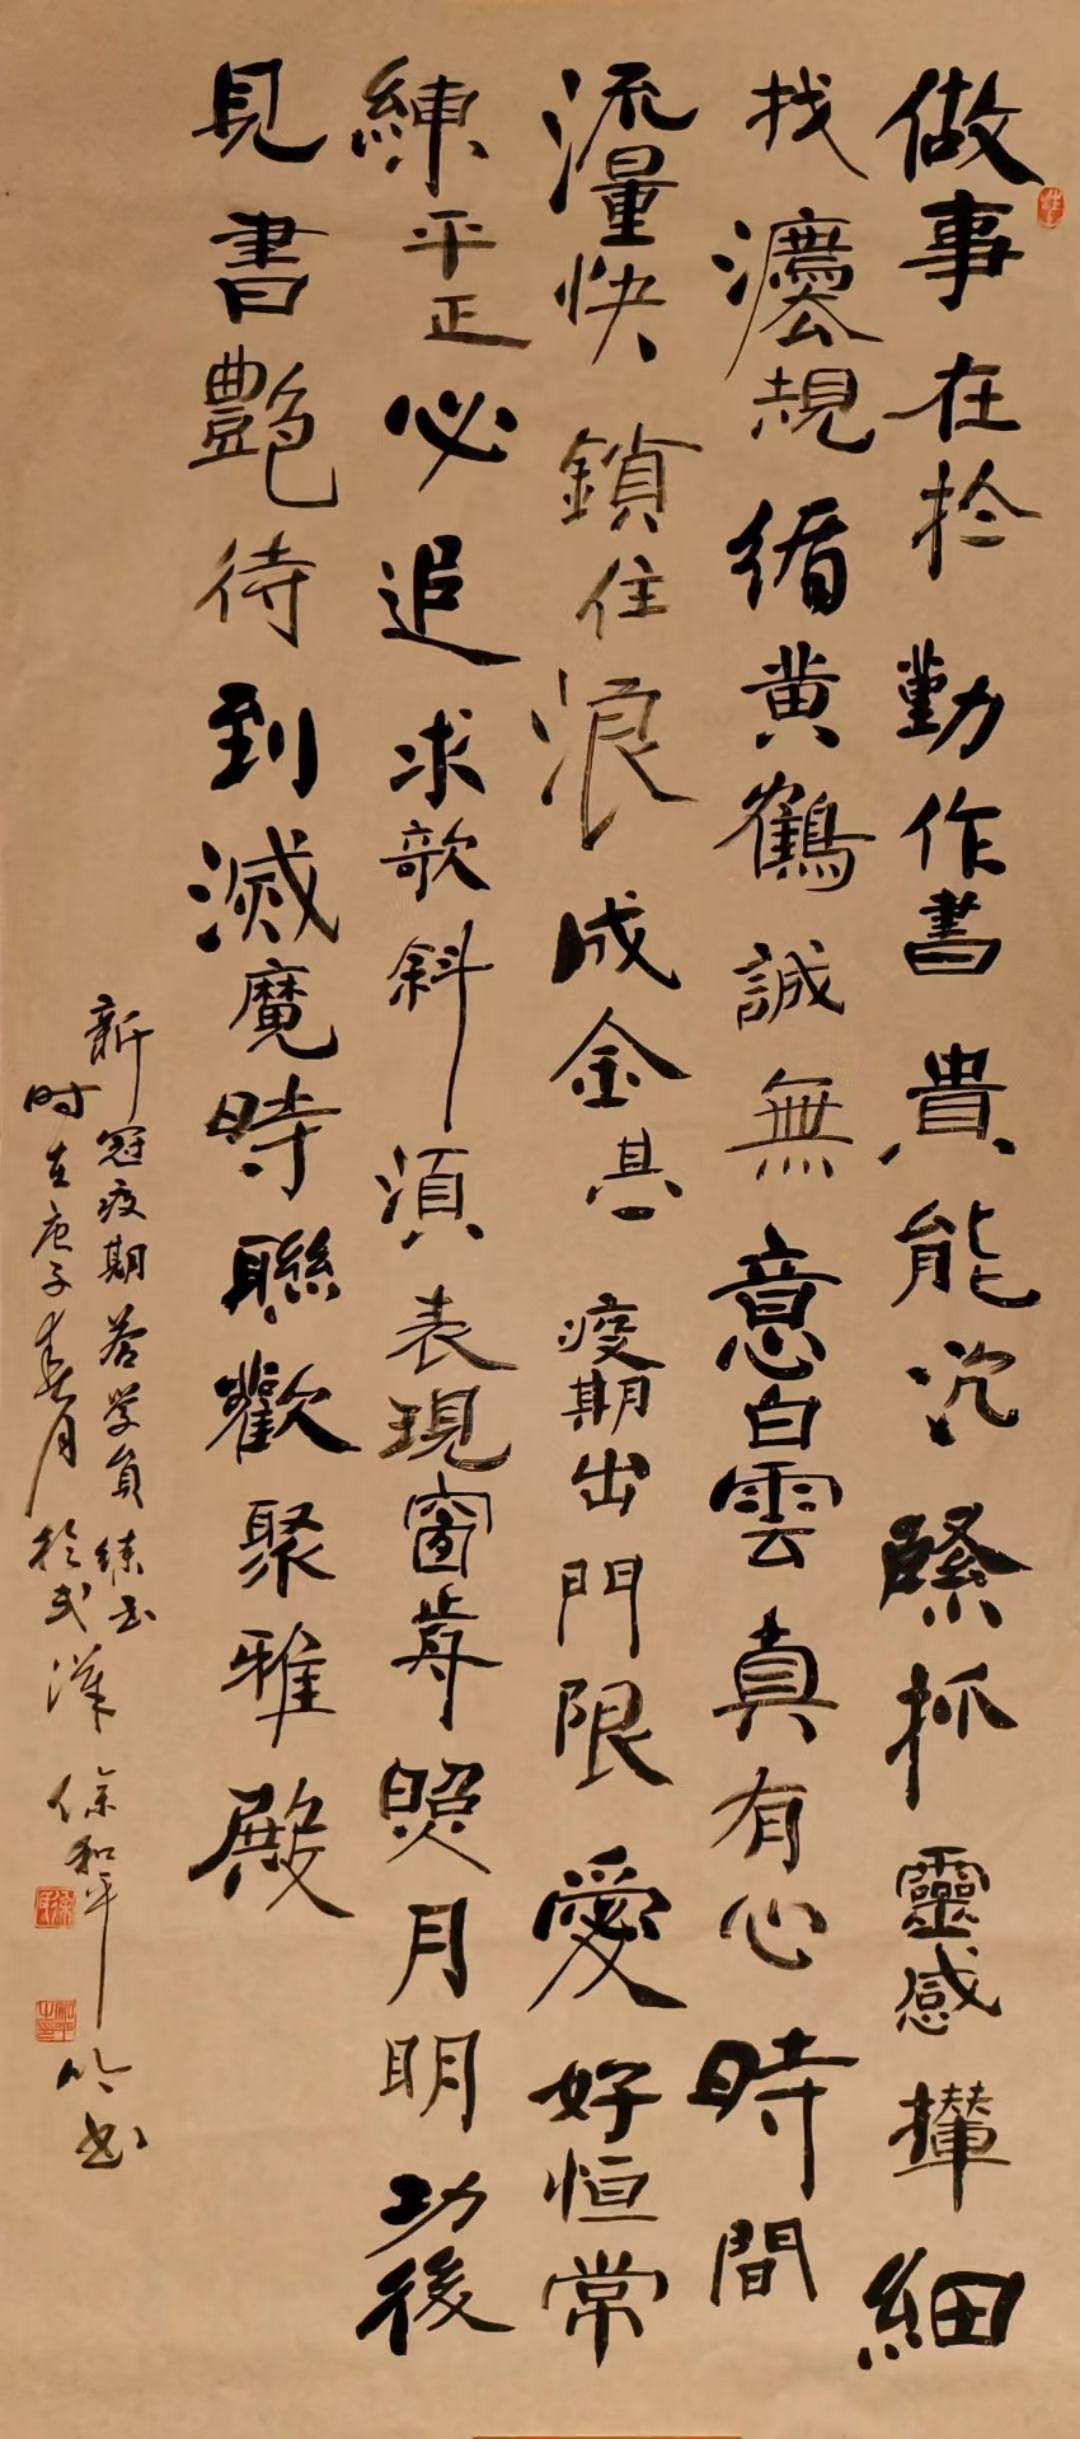 做事在於勤作書貴能沉緊抓靈感撵細
找灋規循黄鶴誠無意白雲真有心時間
流量快鎖住浪成金基疫期出門限愛好恒常
練平正必追求歌斜須表現窗前照月明功後
見書艷待到滅魔時聯歡聚雅殿
新冠疫期答学員练书
时在庚子春月於武漢徐和平吟书